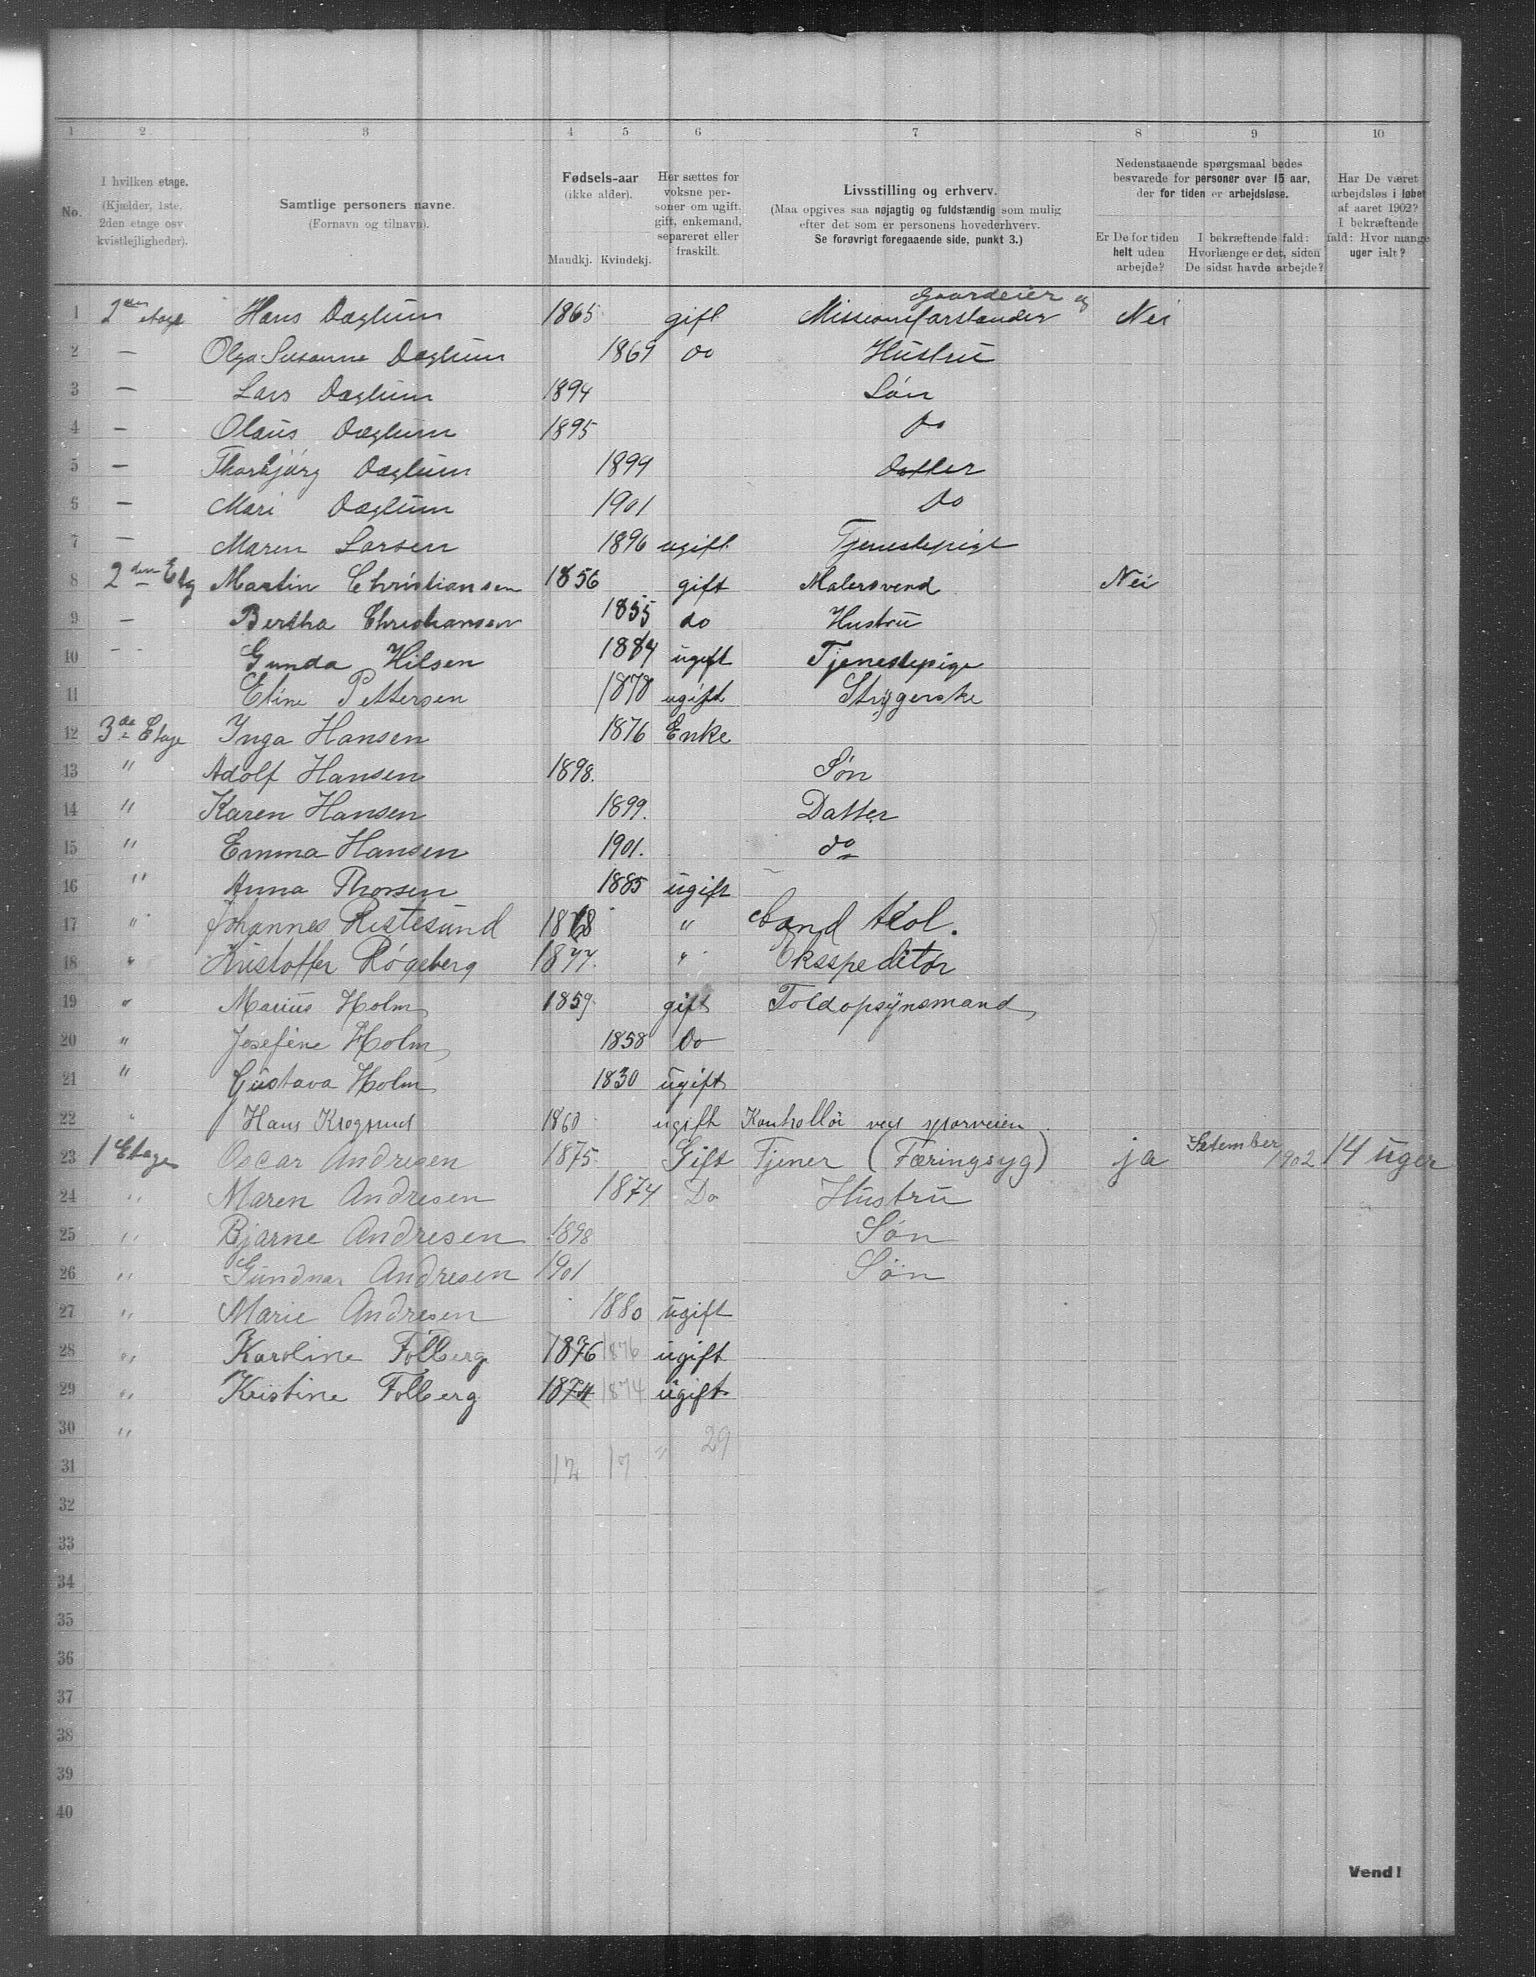 1 2 3 4 5 6 7 8 9 10
No.
I hvilken etage. (Kjælder, 1ste, 2den etage osv. kvistlejligheder).
Samtlige personers navne. (Fornavn og tilnavn).
Fødsels-aar (ikke alder). Mandkj. Kvindekj.
Her sættes for voksne personer om ugift, gift, enkemand, separeret eller fraskilt.
Livsstilling og erhverv. (Maa opgives saa nøjagtig og fuldstændig som mulig efter det som er personens hovederhverv. Se forøvrigt foregaaende side, punkt 3.)
Nedenstaaende spørgsmaal bedes besvarede for personer over 15 aar, der for tiden er arbejdsløse.
Er De for tiden helt uden arbejde?
I bekræftende fald: Hvorlænge er det, siden De sidst havde arbejde?
Har De været arbejdsløs i løbet af aaret 1902? I bekræftende fald: Hvor mange uger ialt?
1 2den etage Hans Dæglum 1865 gift Gaardeier og Missionsforstander Nei
2 — Olga Susanne Dæglum 1869 do Hustru
3 — Lars Dæglum 1894 Søn
4 — Olaus Dæglum 1895 do
5 — Thorbjørg Dæglum 1899 datter
6 — Mari Dæglum 1901 do
7 — Maren Larsen 1896 ugift Tjenestepige
8 2den Etg Martin Christiansen 1856 gift Malersvend Nei
9 — Bertha Christiansen 1855 do Hustru
10 - - Gunda Hilsen 1884 ugift Tjenestepige
11 Eline Pettersen 1878 ugift Strygerske
12 3de Etage Inga Hansen 1876 Enke
13 " Adolf Hansen 1898. Søn
14 " Karen Hansen 1899. Datter
15 " Emma Hansen 1901. do
16 " Anna Thorsen 1885 ugift
17 " Johannes Ristesund 1868 " Cand
18 " Kristoffer Røgeberg 1877. " Eksspeditør
19 " Marius Holm 1859. gift Toldopsynsmand
20 " Josefine Holm 1858 Do
21 " Gustava Holm 1830 ugift
22 " Hans Krogsrud 1860 ugift Kontrollør ved sporveien
23 1 Etage Oscar Andresen 1875 Gift Tjener (Færingsyg) ja Setember 1902 14 uger
24 " Maren Andresen 1874 Do Hustru
25 " Bjarne Andresen 1898 Søn
26 " Gundnar Andresen 1901 Søn
27 " Marie Andresen 1880 ugift
28 " Karoline Folberg 1876 1876 ugift
29 " Kristine Folberg 1874 1874 ugift
30 "
31 12 17 " 29
32
33
34
35
36
37
38
39
40
Vend!